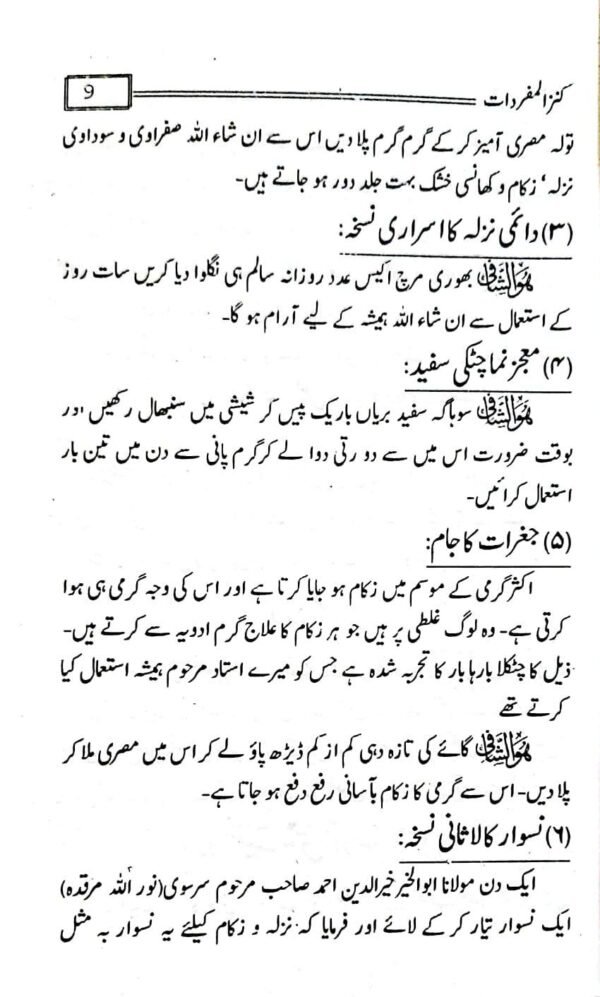 کنز المفردات 9
تولہ مصری آمیز کر کے گرم گرم پلا دیں اس سے ان شاء اللہ صفراوی و سوداوی
نزلہ‘ زکام و کھانسی خشک بہت جلد دور ہو جاتے ہیں۔
(۳) دائمی نزلہ کا اسراری نسخہ:
ھوالشافی بھوری مرچ اکیس عدد روزانہ سالم ہی نگلوا دیا کریں سات روز
کے استعمال سے ان شاء اللہ ہمیشہ کے لیے آرام ہو گا۔
(۴) معجز نما چٹکی سفید:
ھوالشافی سوہاگہ سفید بریاں باریک پیس کر شیشی میں سنبھال رکھیں اور
بوقت ضرورت اس میں سے دو رتی دوا لے کر گرم پانی سے دن میں تین بار
استعمال کرائیں۔
(۵) جغرات کا جام:
اکثر گرمی کے موسم میں زکام ہو جایا کرتا ہے اور اس کی وجہ گرمی ہی ہوا
کرتی ہے۔ وہ لوگ غلطی پر ہیں جو ہر زکام کا علاج گرم ادویہ سے کرتے ہیں۔
ذیل کا چٹکلا بارہا بار کا تجربہ شدہ ہے جس کو میرے استاد مرحوم ہمیشہ استعمال کیا
کرتے تھے
ھوالشافی گائے کی تازہ دہی کم از کم ڈیڑھ پاؤ لے کر اس میں مصری ملا کر
پلا دیں۔ اس سے گرمی کا زکام بآسانی رفع دفع ہو جاتا ہے۔
(۶) نسوار کا لاثانی نسخہ:
ایک دن مولانا ابوالخیر خیرالدین احمد صاحب مرحوم سرسوی (نور اللہ مرقدہ)
ایک نسوار تیار کر کے لائے اور فرمایا کہ نزلہ و زکام کیلئے یہ نسوار بہ مثل